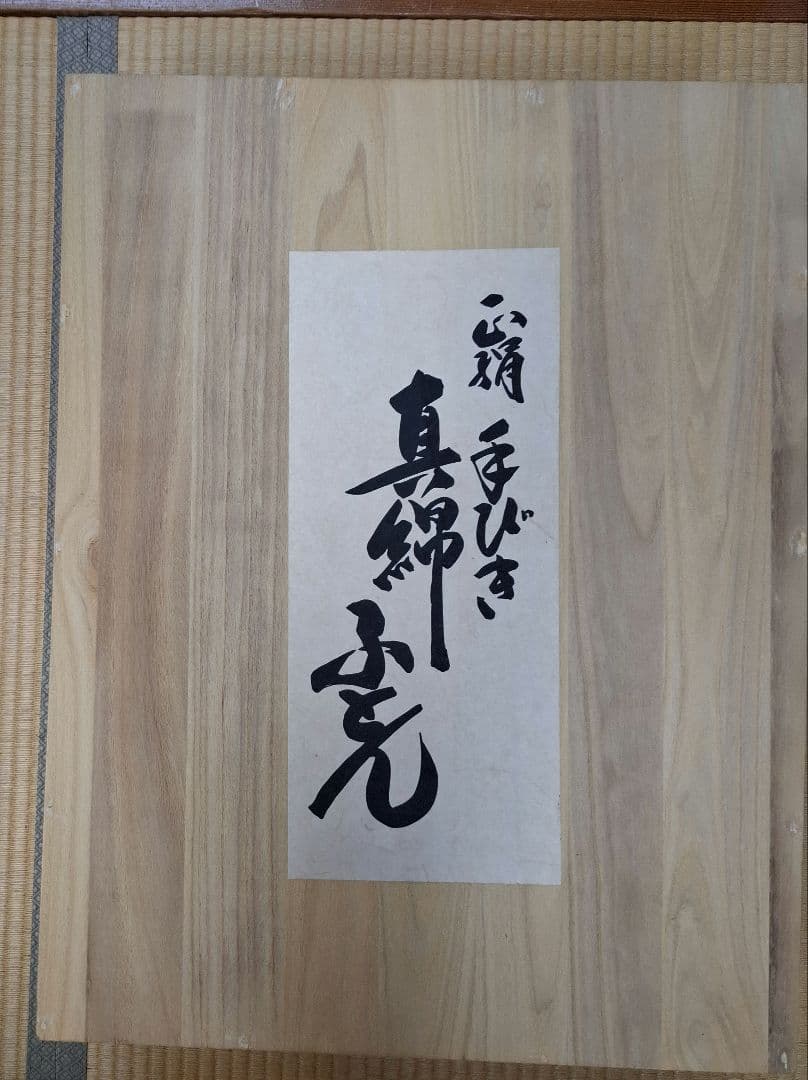 正絹 手びき
真綿ふとん